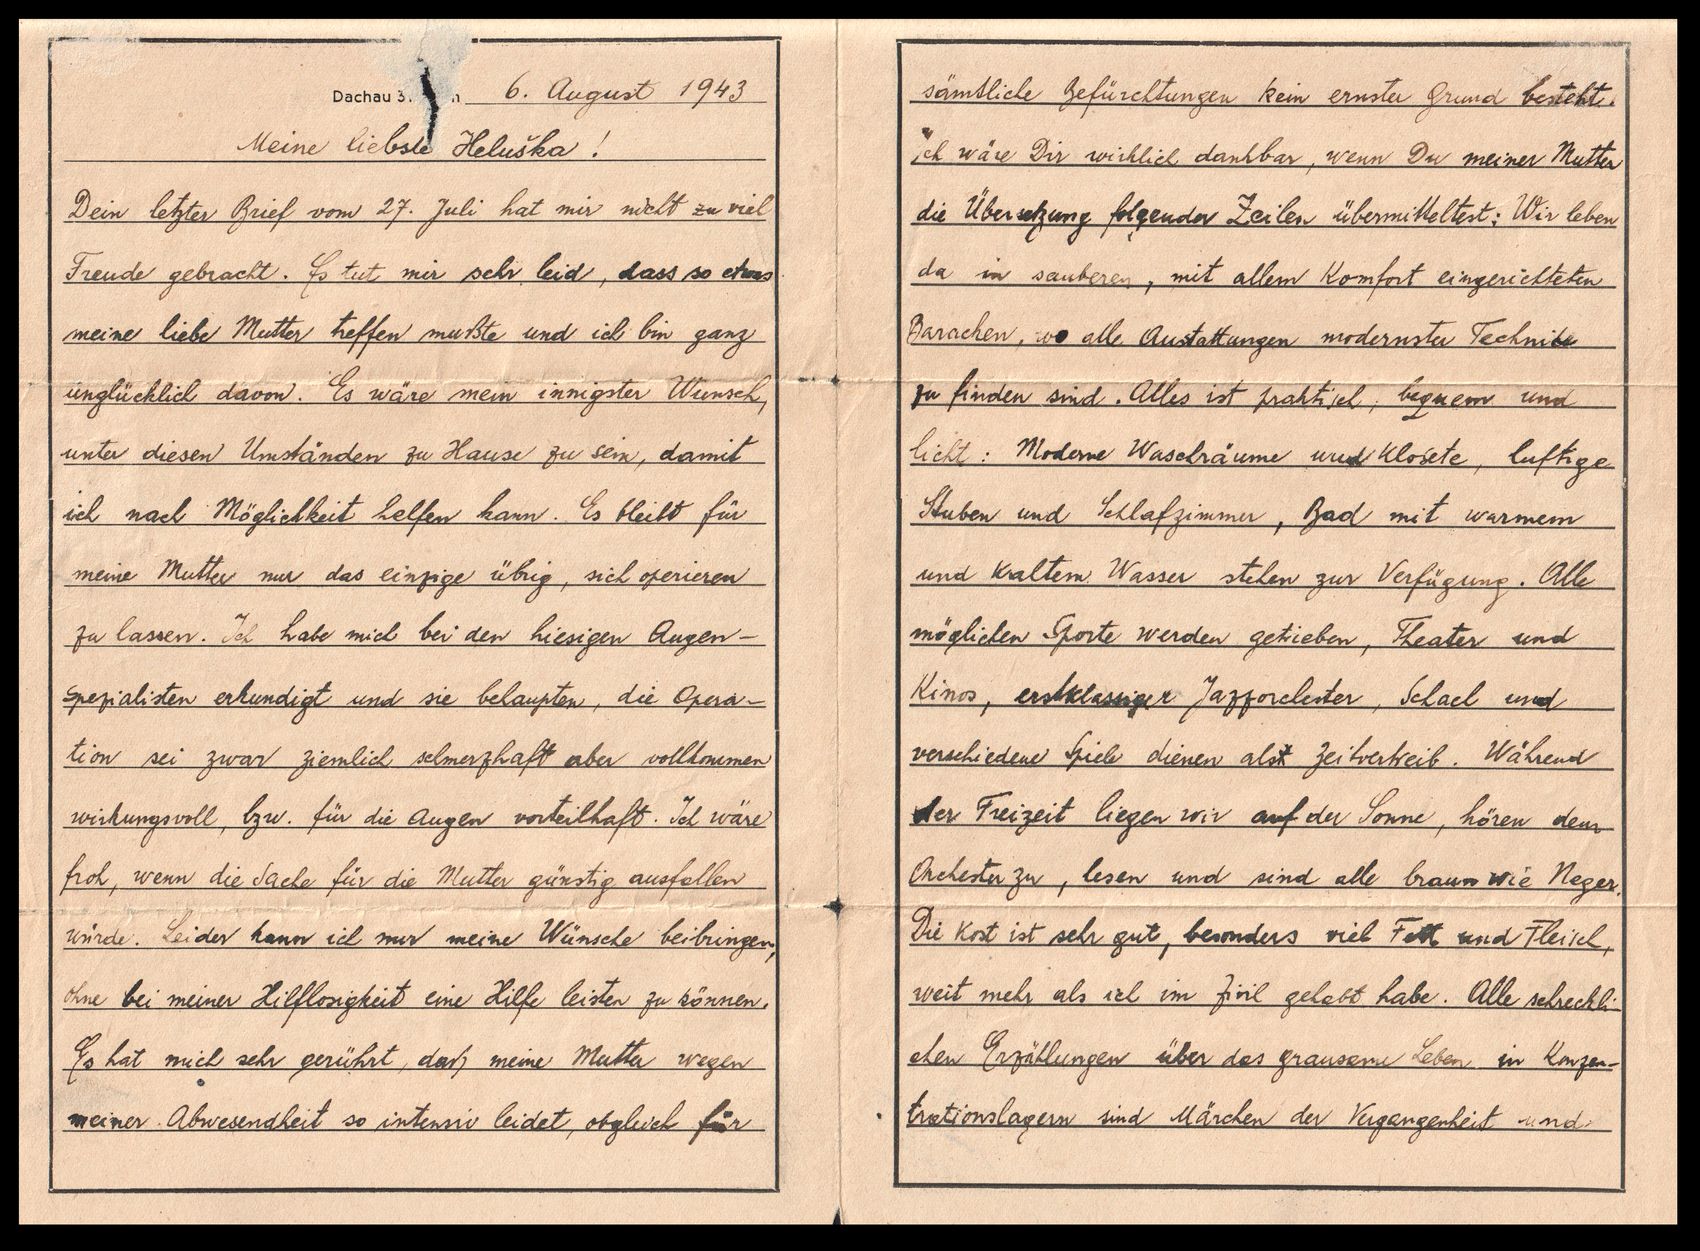 Dachau 3 n 6. August 1943
Meine liebste Heluška!
Dein letzter Brief vom 27. Juli hat mir nicht zu viel
Freude gebracht. Es tut mir sehr leid, dass so etwas
meine liebe Mutter treffen mußte und ich bin ganz
unglücklich davon. Es wäre mein innigster Wunsch,
unter diesen Umständen zu Hause zu sein, damit
ich nach Möglichkeit helfen kann. Es bleibt für
meine Mutter nur das einzige übrig, sich operieren
zu lassen. Ich habe mich bei den hiesigen Augen-
spezialisten erkundigt und sie behaupten, die Opera-
tion sei zwar ziemlich schmerzhaft aber vollkommen
wirkungsvoll, bzw. für die Augen vorteilhaft. Ich wäre
froh, wenn die Sache für die Mutter günstig ausfallen
würde. Leider kann ich nur meine Wünsche beibringen,
ohne bei meiner Hilflosigkeit eine Hilfe leisten zu können.
Es hat mich sehr gerührt, daß meine Mutter wegen
meiner Abwesendheit so intensiv leidet, obgleich für
sämtliche Befürchtungen kein ernster Grund besteht.
Ich wäre Dir wirklich dankbar, wenn Du meiner Mutter
die Übersetzung folgender Zeilen übermitteltest: Wir leben
da in sauberen, mit allem Komfort eingerichteten
Baracken, wo alle Austattungen modernster Technik
zu finden sind. Alles ist praktisch, bequem und
licht: Moderne Waschräume und Klosete, luftige
Stuben und Schlafzimmer, Bad mit warmem
und kaltem Wasser stehen zur Verfügung. Alle
möglichen Sporte werden getrieben, Theater und
Kinos, erstklassiger Jazzorchester, Schach und
verschiedene Spiele dienen als Zeitvertreib. Während
der Freizeit liegen wir auf der Sonne, hören dem
Orchester zu, lesen und sind alle braun wie Neger.
Die Kost ist sehr gut, besonders viel Fett und Fleisch,
weit mehr als ich im Zivil gehabt habe. Alle schreckli-
chen Erzählungen über das grausame Leben in Konzen-
trationslagern sind Märchen der Vergangenheit und